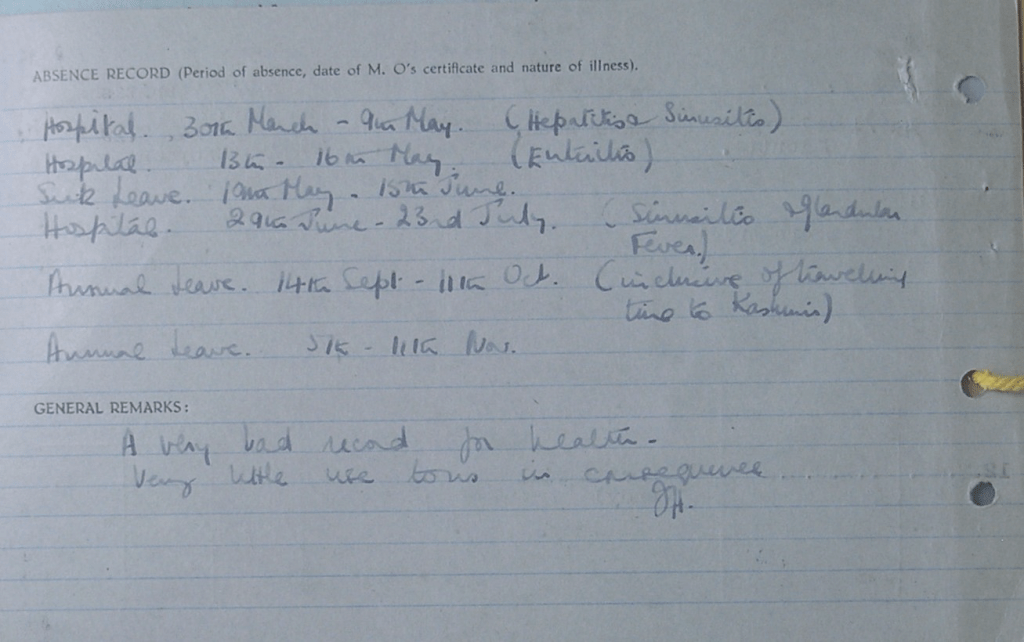 ABSENCE RECORD (Period of absence, date of M. O's certificate and nature of illness).
Hospital. 30th March - 9th May. (Hepatitis & Sinusitis)
Hospital. 13th - 16th May. (Enteritis)
Sick Leave. 19th May - 15th June.
Hospital. 29th June - 23rd July. (Sinusitis & Glandular
Fever.)
Annual Leave. 14th Sept - 11th Oct. (inclusive of travelling
time to Kashmir)
Annual Leave. 5th - 11th Nov.
GENERAL REMARKS:
A very bad record for health -
Very little use to us in consequence
JH.